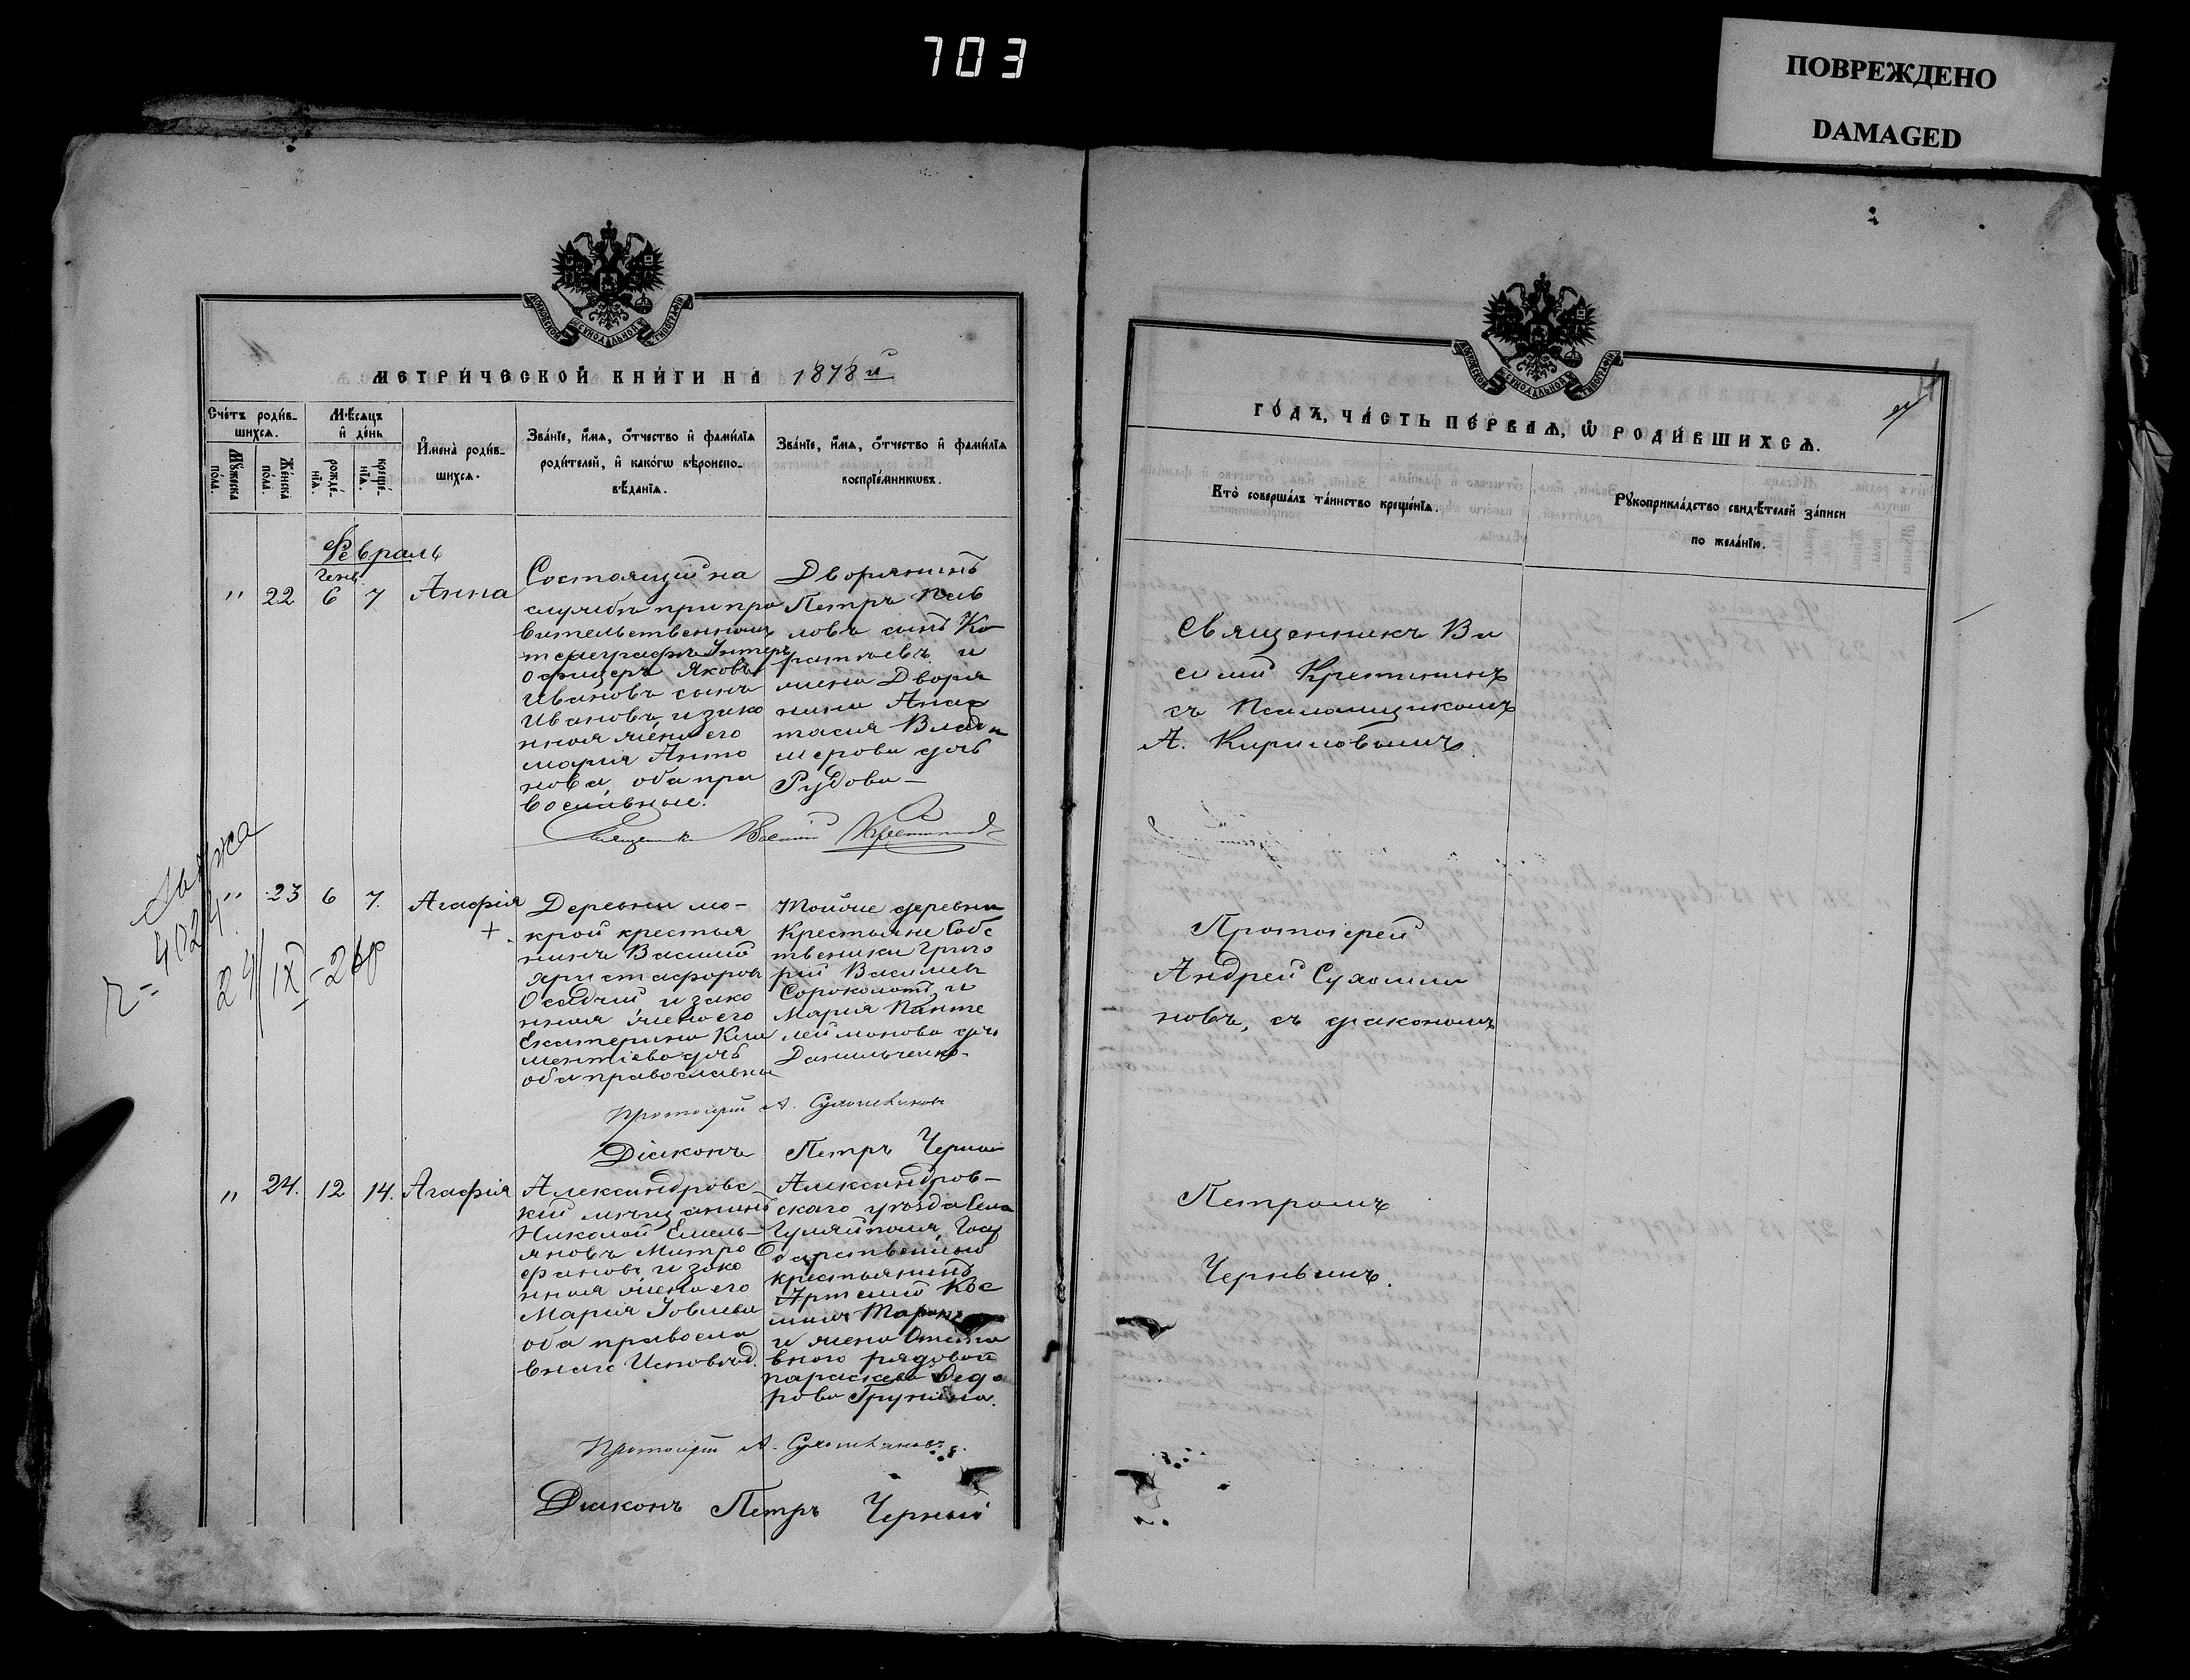 703
ПОВРЕЖДЕНО
DAMAGED
МОСКОВСКОЙ СѴНОДАЛЬНОЙ ТИПОГРАФІИ
МЕТРИ́ЧЕСКОЙ КНИ́ГИ НА 1878 й
Сче́тъ роди́в-
шихсѧ.
Мꙋ́жеска
пола.
Же́нска
по́ла.
Мѣ́сѧцъ
и҆ де́нь
рожде́-
нїѧ.
креще́-
нїѧ.
И҆мена̀ роди́в-
шихсѧ.
Зва́нїе, и҆́мѧ, ѻ҆́тчество и҆ фами́лїѧ
роди́телей, и҆ како́гѡ вѣроиспо-
вѣ́данїѧ.
Зва́нїе, и҆́мѧ, ѻ҆́тчество и҆ фами́лїѧ
воспрїе́мникѡвъ.
Февраль
" 22 6 7 Анна
Состоящій на
службѣ при пра
вительственномъ
телеграфѣ Унтеръ
офицеръ Яковъ
Ивановъ сынъ
Ивановъ, и зако
нная жена его
Марія Анто
нова, оба пра
вославные.
Дворянинъ
Петръ Пав
ловъ сынъ Ко
и
жена Дворя
нина Анас
тасія Влади
мерова дочь
Рудова —
Священникъ Василій Крестининъ
" 23 6 7. Агафія
+
4024
24/IX-26р
Деревни Мо-
крой крестья
нинъ Василій
Христафоровъ
Осадчій и зако
нная жена его
Екатерина Кли
ментіева дочь
оба православны
Тойже деревни
Крестьяне Собс
твеники Григо
рій Васильевъ
Сороколатъ, и
Марія Панте
леймонова дочь
Данильченко-
Протоіерей А. Сухомлиновъ
Діаконъ Петръ Черный
" 24. 12 14. Агафія
Александровс-
кій мѣщанинъ
Николай Емель-
яновъ Митро
фановъ, и зако
нная жена его
Марія Іовлева
оба правосла
внаго Исповѣд.
Александров-
скаго уѣзда Села
Гуляйполя, Госу
дарственный
крестьянинъ
Артемій Кос
минъ
и жена Отста
вного рядовой
Параскева Федо
рова Грунина.
Протоіерей А. Сухомлиновъ
Діаконъ Петръ Черный
МОСКОВСКОЙ СѴНОДАЛЬНОЙ ТИПОГРАФІИ
ГО́ДЪ, ЧА́СТЬ ПЕ́РВАѦ, Ѡ҆ РОДИ́ВШИХСѦ.
Кто̀ соверша́лъ та́инство креще́нїѧ.
Рꙋкоприкла́дство свидѣ́телей за́писи
по жела́нїю.
Священникъ Ва
силій Крестининъ
съ Псаломщикомъ
А. Кириловымъ.
Протоіерей
Андрей Сухомли
новъ, съ діакономъ
Петромъ
Чернымъ.